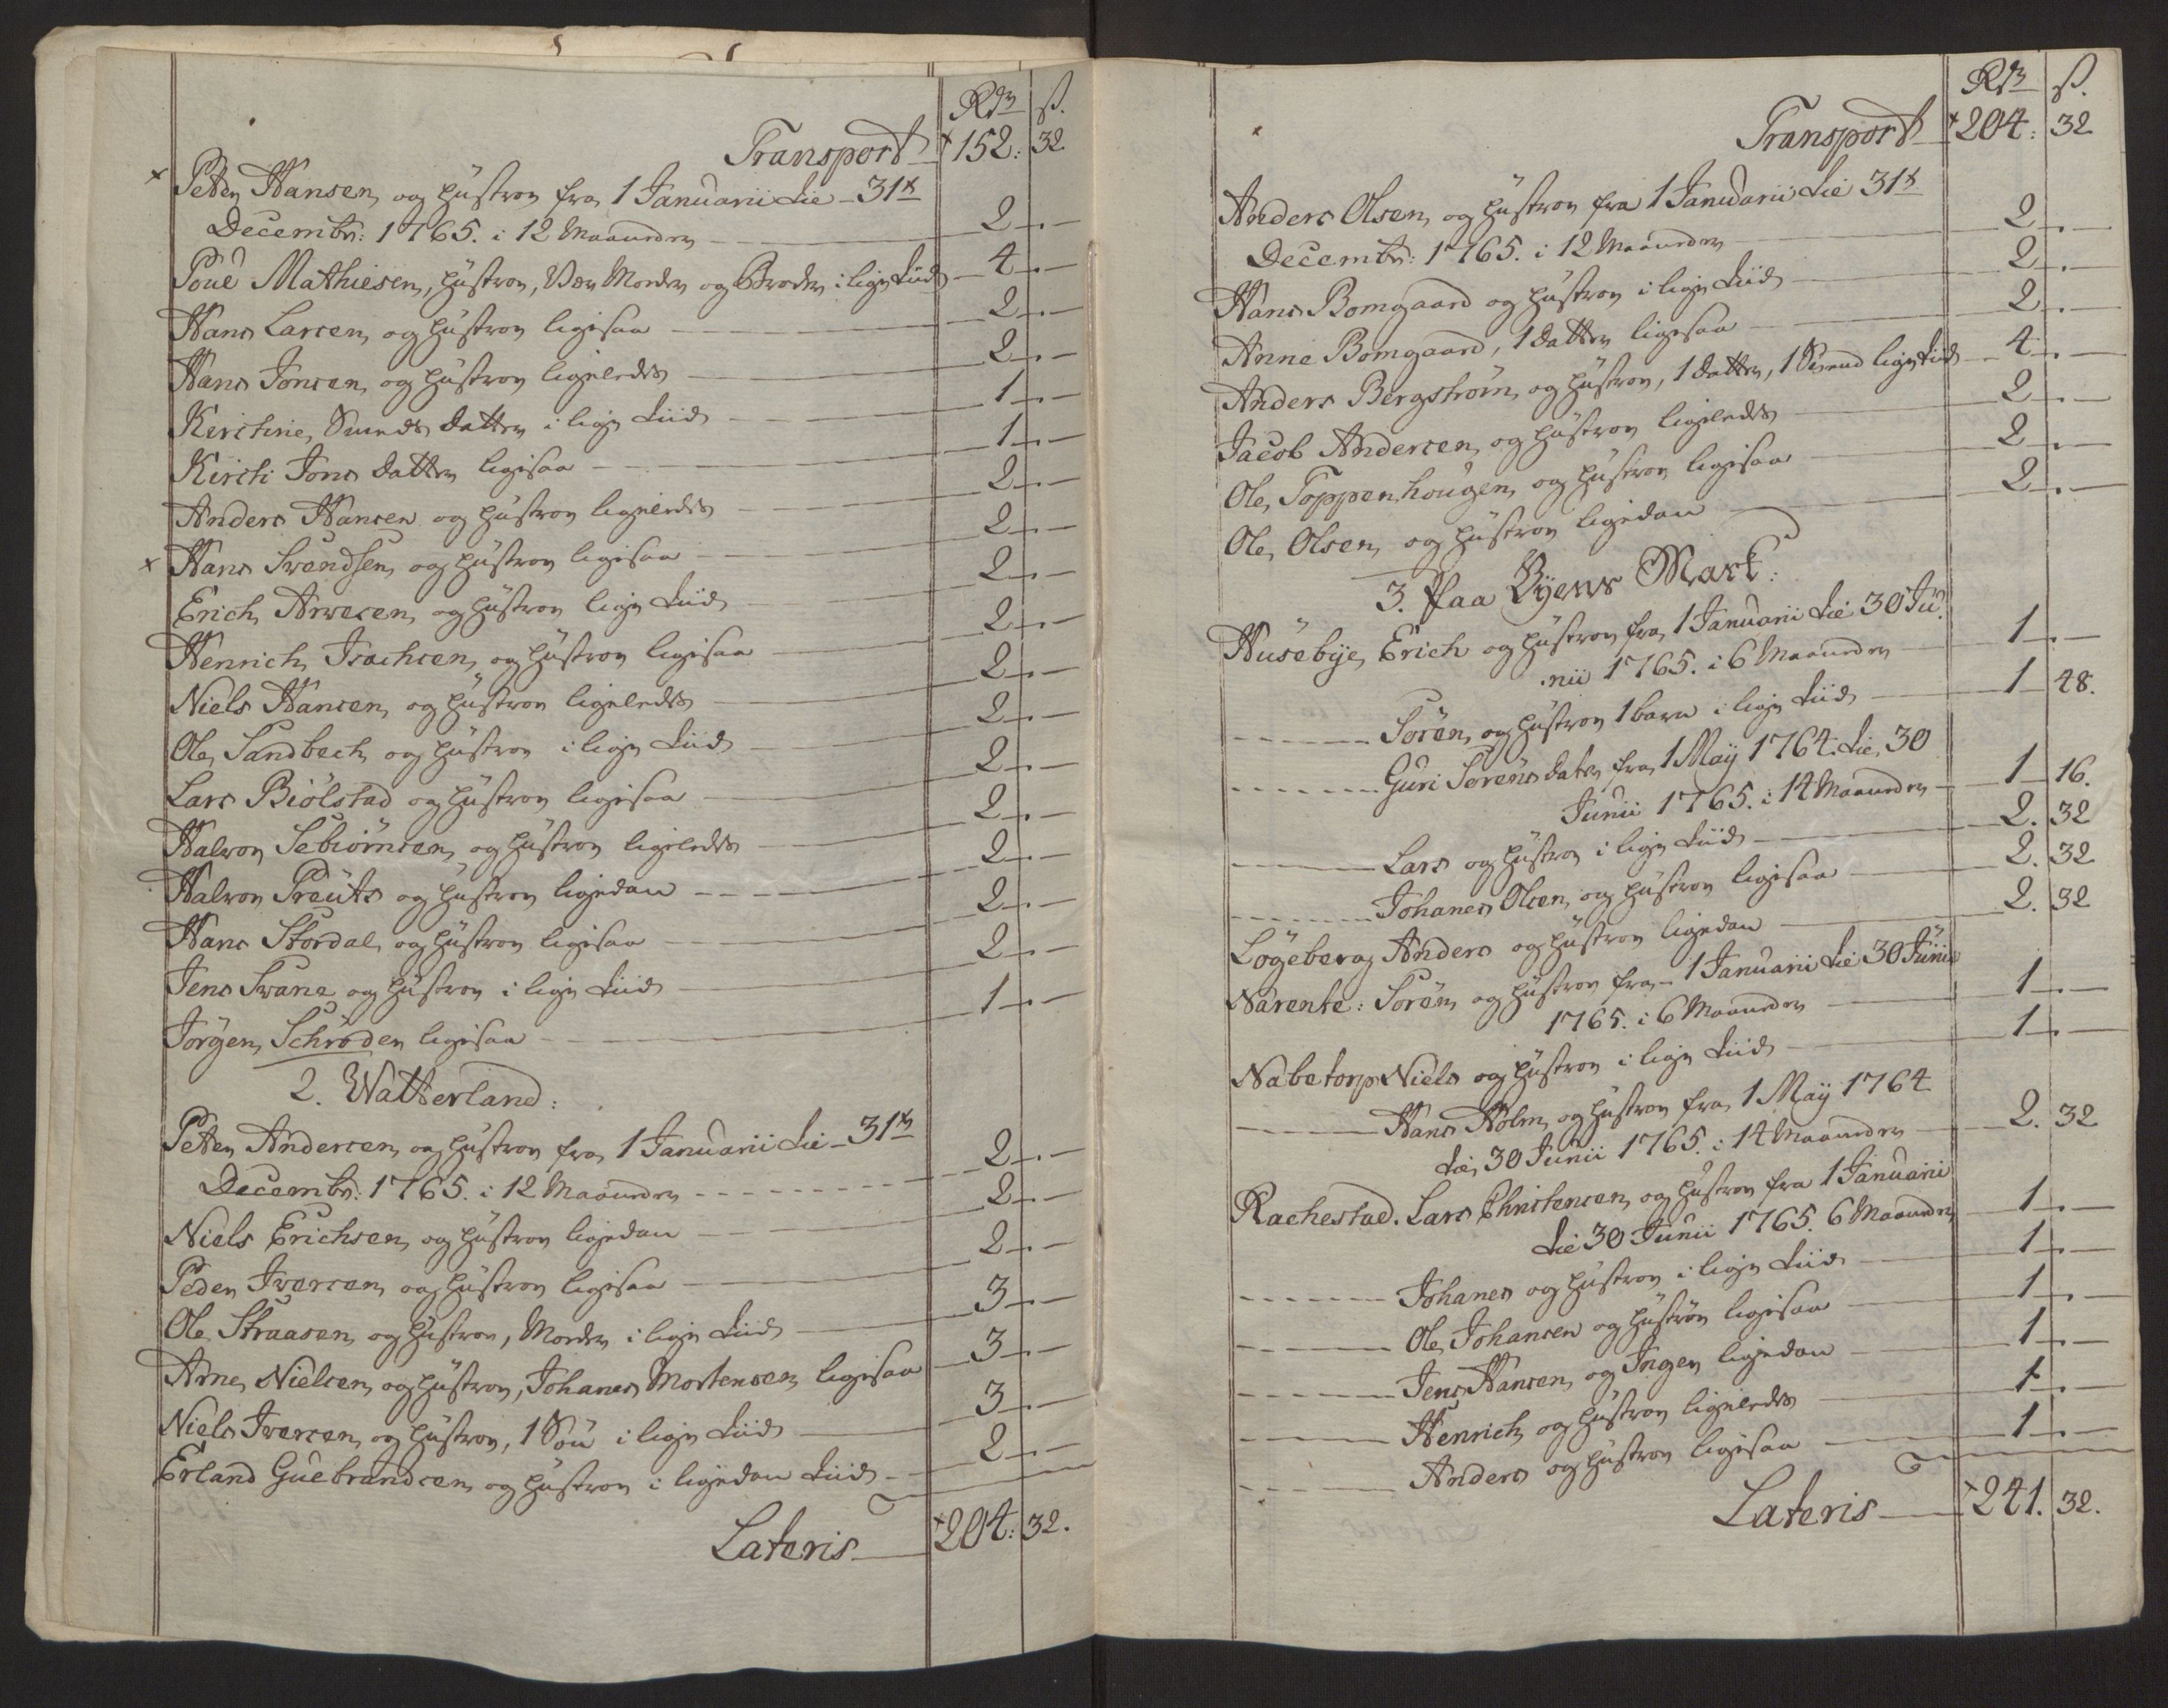 Rdr ß.
Transport 152: 32
Peter Hansen og hustroe fra 1 Januarii til 31te
Decembr: 1765. i 12 Maaneder 2 . -
Poul Mathiesen, hustroe, Moder og Broder i lige tiid 4 . -
Hans Larsen og hustroe ligesaa 2 . -
Hans Jonsen og hustroe ligeledes 2 . -
Kirstine Svends datter i lige tiid 1 . -
Kirsti Jons datter ligesaa 1 . -
Anders Hansen og hustroe ligeledes 2 . -
Hans Svendsen og hustroe ligesaa 2 . -
Erich Arvesen og hustroe lige tiid 2 . -
Henrich Isachsen og hustroe ligesaa 2 . -
Niels Hansen og hustroe ligeledes 2 . -
Ole Sandbech og hustroe i lige tiid 2 . -
Lars Biölstad og hustroe ligesaa 2 . -
Halvor Sebiörnsen og hustroe ligeledes 2 . -
Halvor Preüts og hustroe ligedan 2 . -
Hans Stordal og hustroe ligesaa 2 . -
Jens Svane og hustroe i lige tiid 2 . -
Jörgen Schrøder ligesaa 1 . -
2. Watterland:
Peter Andersen og hustroe fra 1 Januarii til 31te
Decembr: 1765. i 12 Maaneder 2 . -
Niels Erichsen og hustroe ligedan 2 . -
Peder Iversen og hustroe ligesaa 2 . -
Ole Straasen og hustroe, Moder i lige tiid 3 . -
Arne Nielsen og hustroe, Johanes Mortensen ligesaa 3 . -
Niels Iversen og hustroe, 1 Sön i lige tiid 3 . -
Erland Guebrandsen og hustroe i ligedan tiid 2 . -
Lateris 204: 32.
Rdr ß.
Transport 204: 32
Anders Olsen og hustroe fra 1 Januarii til 31te
Decembr: 1765. i 12 Maaneder 2 . -
Hans Bomgaard og hustroe i lige tiid 2 . -
Anne Bomgaard, 1 datter ligesaa 2 . -
Anders Bergström og hustroe, 1 datter, 1 Svend lige tiid 4 . -
Jacob Andersen og hustroe ligeledes 2 . -
Ole Toppenhougen og hustroe ligesaa 2 . -
Ole Olsen og hustroe ligedan 2 . -
3. Paa Byens Mark:
Husebye, Erich og hustroe fra 1 Januarii til 30 Ju-
nii 1765. i 6 Maaneder 1 . -
Sören og hustroe 1 barn i lige tiid 1 48.
Guri Sörens dater fra 1 May 1764. til 30
Junii 1765. i 14 Maaneder 1 16.
Lars og hustroe i lige tiid 2. 32
Johanes Olsen og hustroe ligesaa 2. 32
Lögeberg Anders og hustroe ligedan 2. 32
Närente: Sören og hustroe fra 1 Januarii til 30 Junii
1765. i 6 Maaneder 1 . -
Nabetorp Niels og hustroe i lige tiid 1 . -
Hans Holm og hustroe fra 1 May 1764
til 30 Junii 1765. i 14 Maaneder 2. 32
Rachestad. Lars Christensen og hustroe fra 1 Januarii
til 30 Junii 1765. 6 Maaneder 1 . -
Johanes og hustroe i lige tiid 1 . -
Ole Johansen og hustroe ligesaa 1 . -
Jens Hansen og Inger ligedan 1 . -
Henrich og hustroe ligeledes 1 . -
Anders og hustroe ligesaa 1 . -
Lateris 241. 32.